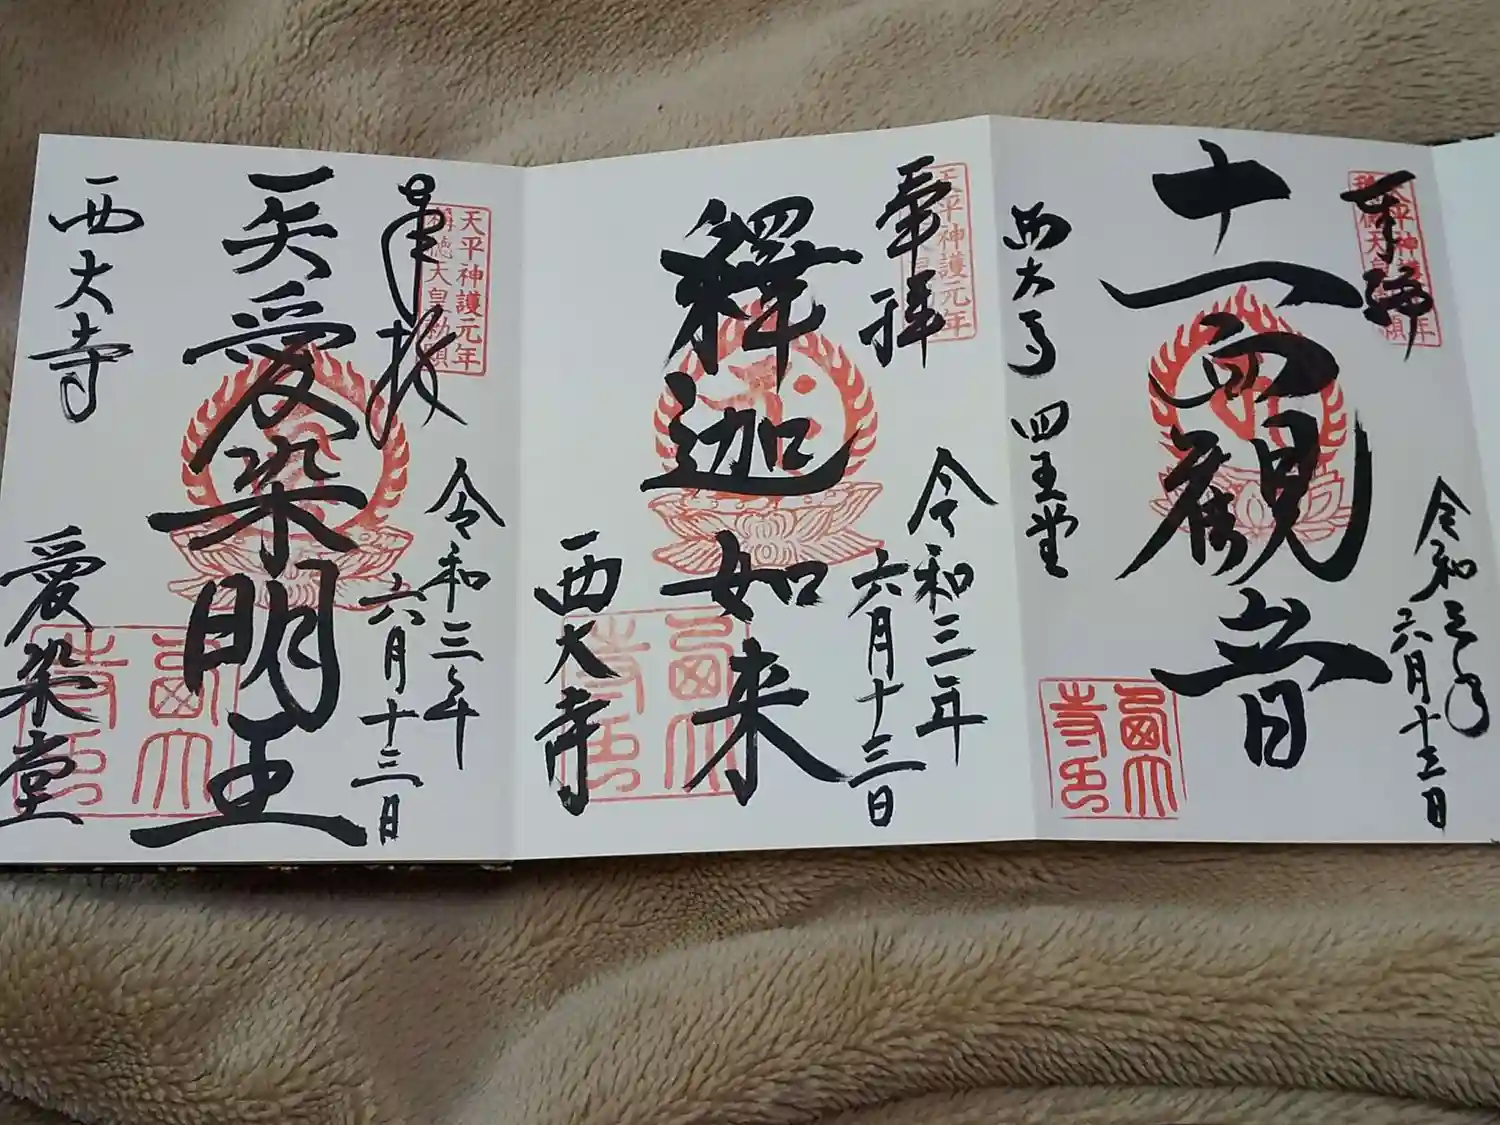 奉拝
天平神護元年
令和三年
六月十三日
十一面観音
西大寺 四王堂
西大寺印
奉拝
天平神護元年
令和三年
六月十三日
釋迦如来
西大寺
西大寺印
奉拝
天平神護元年
稱徳天皇勅願
令和三年
六月十三日
愛染明王
西大寺 愛染堂
西大寺印